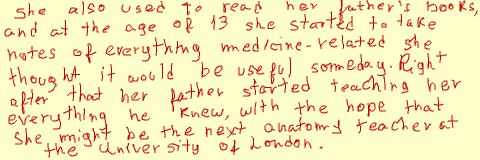 she also used to read her father's books,
and at the age of 13 she started to take
notes of everything medicine-related she
thought it would be useful someday. Right
after that her father started teaching her
everything he knew, with the hope that
she might be the next anatomy teacher at
the University of London.